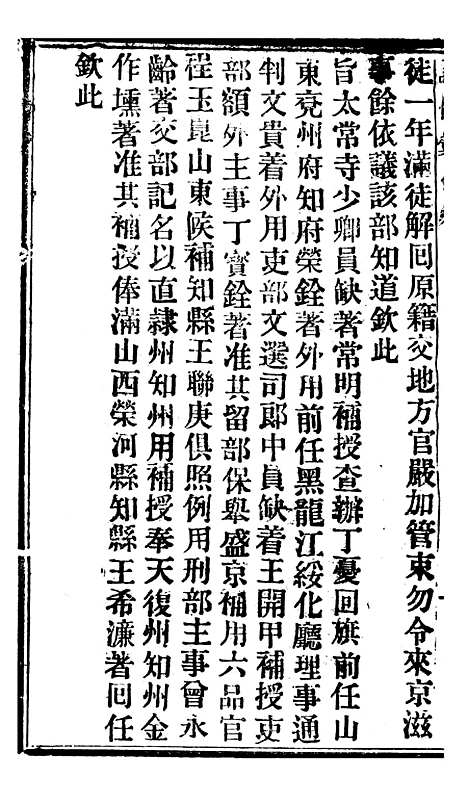 徒一年滿徒解回原籍交地方官嚴加管束勿令來京滋
事餘依議該部知道欽此
旨太常寺少卿員缺著常明補授查辦丁憂回旗前任山
東兗州府知府榮銓著外用前任黑龍江綏化廳理事通
判文貴着外用吏部文選司郎中員缺着王開甲補授吏
部額外主事丁寶銓著准其留部保舉盛京補用六品官
程玉崑山東候補知縣王聯庚俱照例用刑部主事曾永
齡著交部記名以直隸州知州用補授奉天復州知州金
作壎著准其補授俸滿山西榮河縣知縣王希濂著回任
欽此